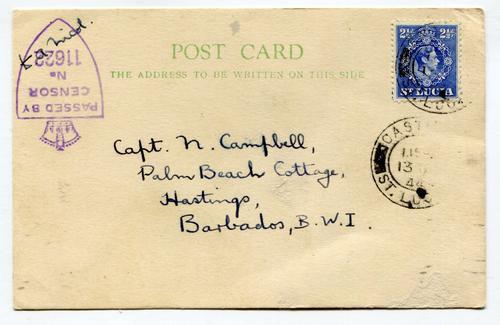 POST CARD
THE ADDRESS TO BE WRITTEN ON THIS SIDE
2½ᴰ 2½ᴰ
ST LUCIA
PASSED BY
CENSOR
No
11622
CAST
13
44
ST. LUC
Capt. N. Campbell,
Palm Beach Cottage,
Hastings,
Barbados, B.W.I.